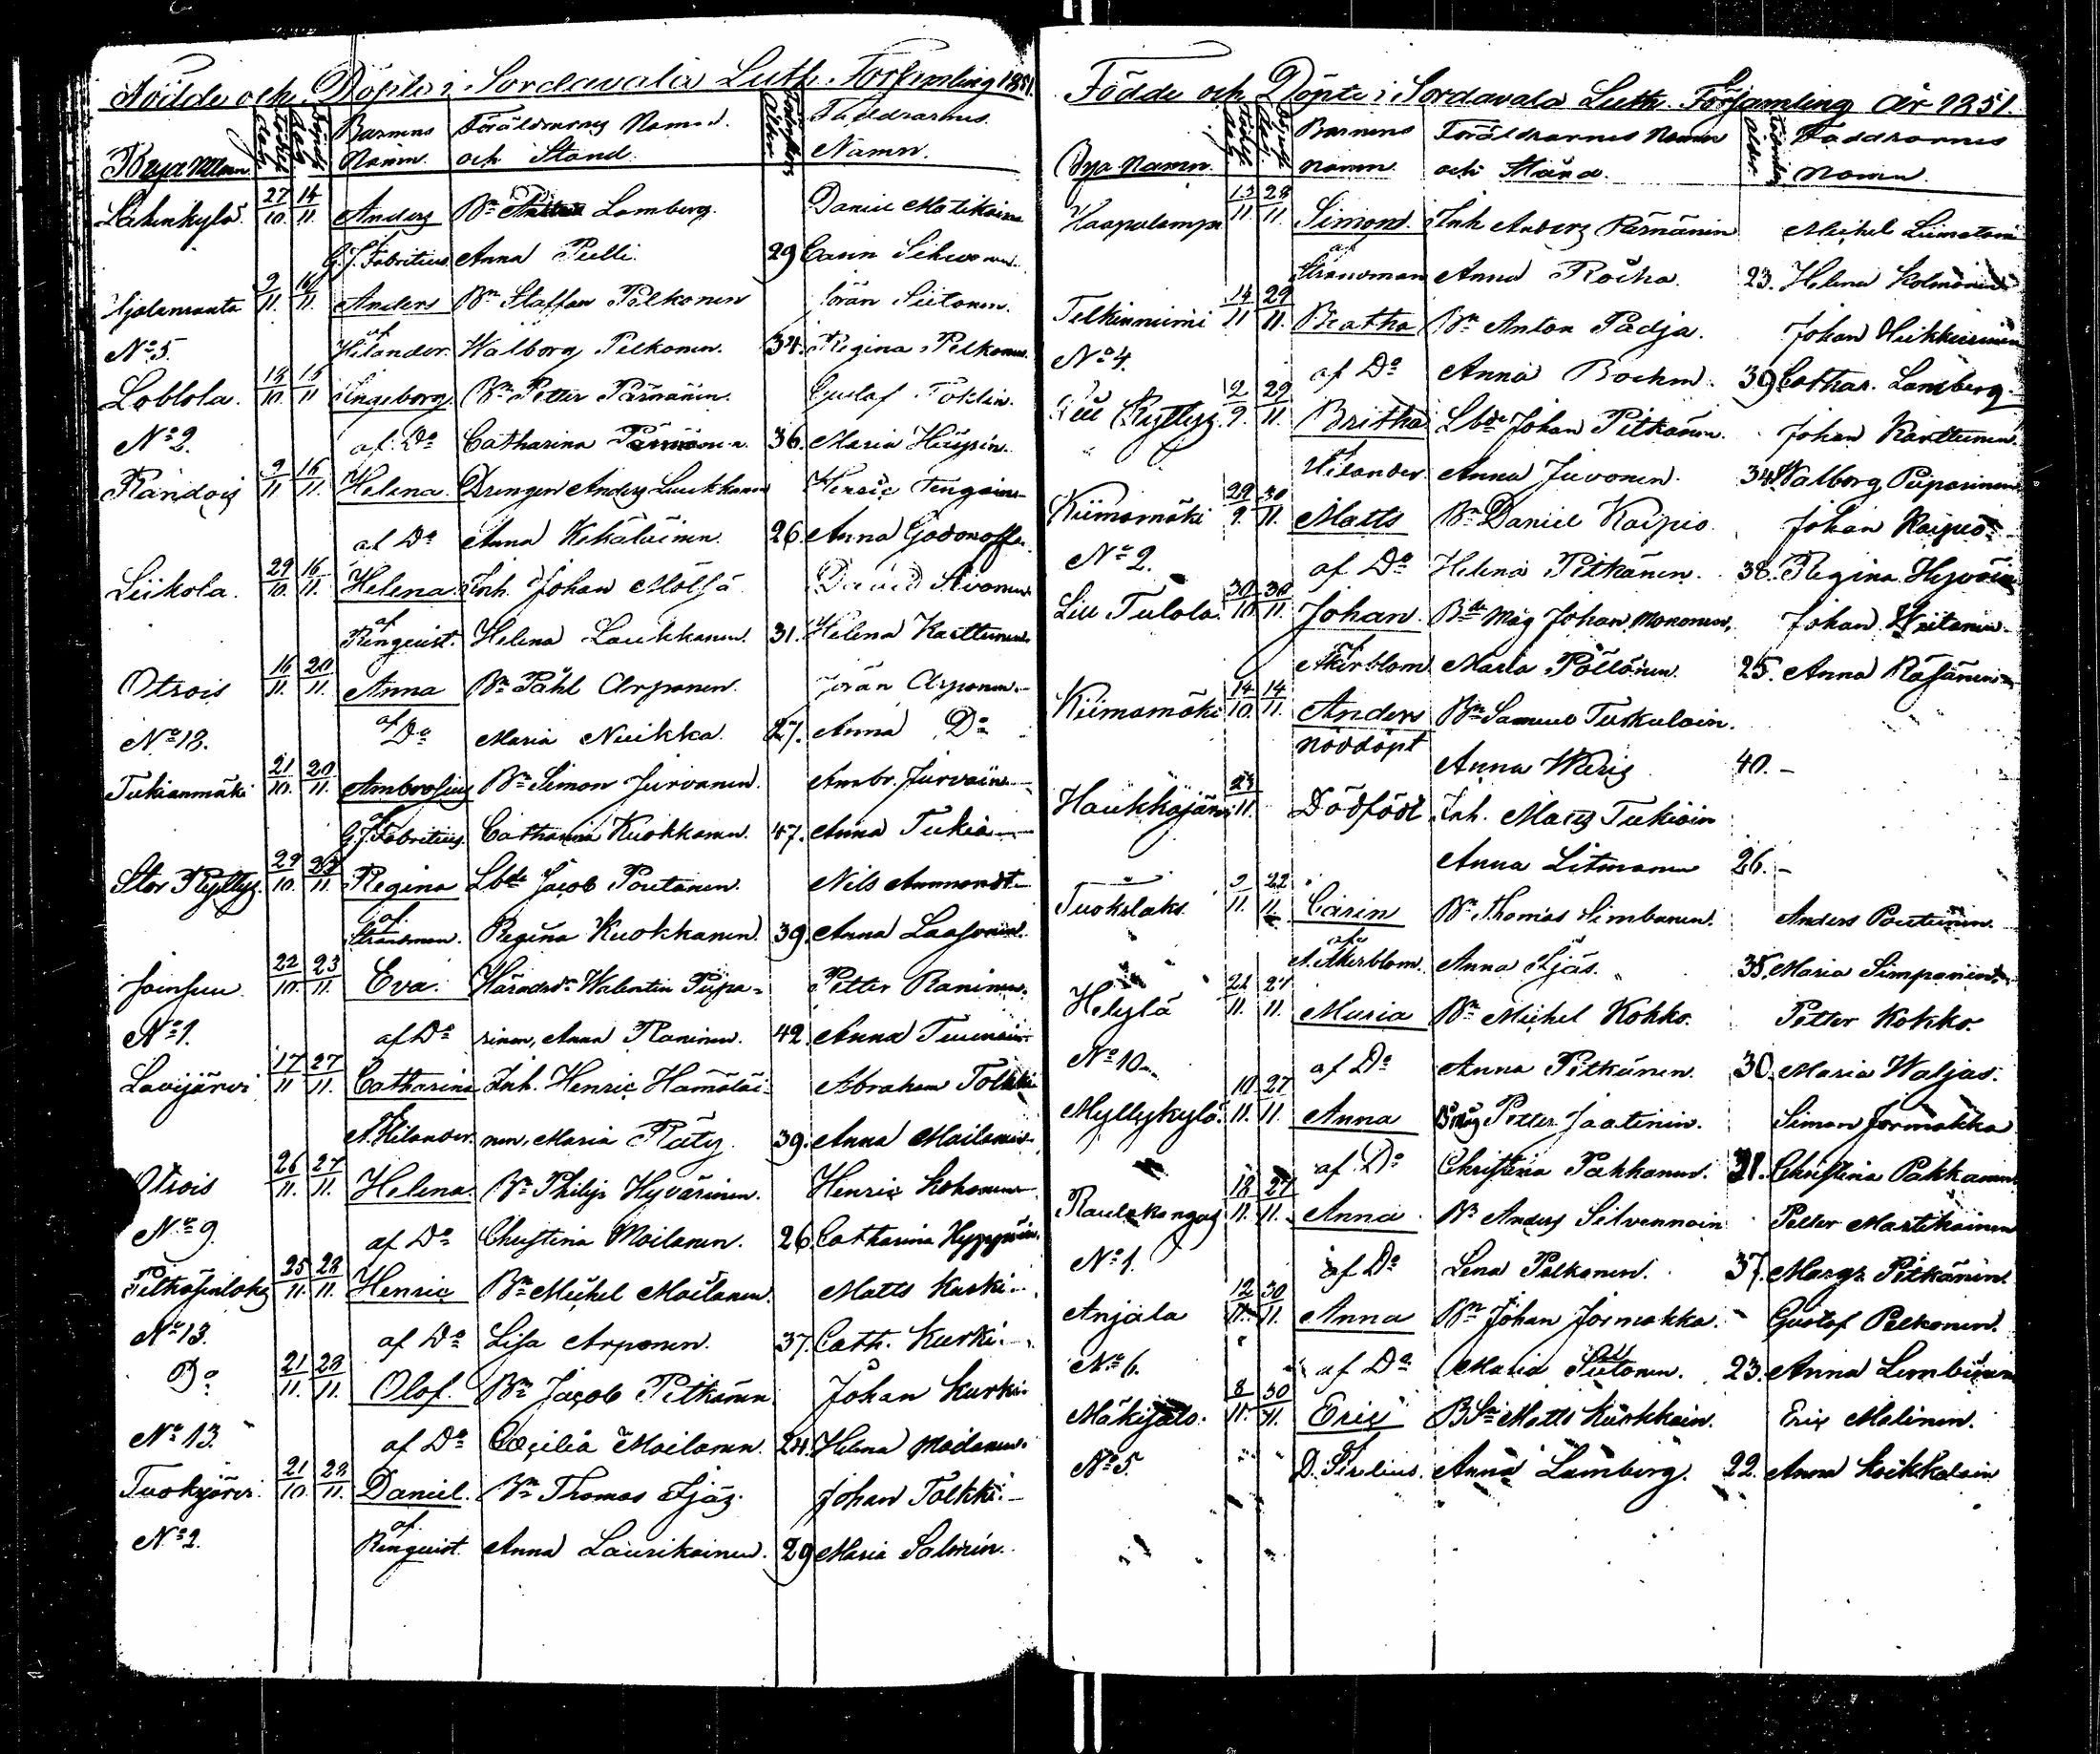 Födde och Döpte i Sordavala Luth. Församling 1851.
Byar Namn. Födelse dag Döpelse dag Barnens Namn. Föräldrarnes Namn och Stånd. Moders Ålder Faddrarnes Namn.
Lahenkylä. 27/10. 14/11. Anders Bn Lomberg. Daniel Matikaine
G. J. Fabritius Anna Pulli. 29 Carin
Hjalansanta 9/11. 16/11. Anders Bn Staffan Pelkonen Jöran Siitonen.
No 5. af Hilander. Walborg Pelkonen. 34. Regina Pelkonen
Loblola. 18/10. 16/11 Ingeborg Bn Petter Pärnänen. Gustaf
No 2. af Do Catharina Pärnänen. 36. Maria
Randois 9/11 16/11. Helena. Drengen Anders Luukkanen Henric
af Do Anna Kekäläinen. 26. Anna Godonoffa.
Liikola. 29/10. 16/11. Helena Inh. Johan Mölsä
af Renquist. Helena Laukkanen. 31. Helena Karttunen.
Otsois 16/11. 20/11. Anna Bn Påhl Arponen. Jöran Arponen.
No 18. af Do Maria Nuikka. 27. Anna Do
Tukianmäki 21/10. 20/11. Ambrosius Bn Simon Jurvanen. Ambr. Jurvain
af G. J. Fabritius. Catharina Kuokkanen. 47. Anna Tukia
Stor Ryttys. 29/10. 23/11. Regina Lbde Jacob Poutanen. Nils
af Strandman. Regina Kuokkanen. 39. Anna Laasonen.
Joensuu 22/10. 23/11. Eva. Häradsdr Walentin Piipa- Petter Raninen.
No 1. af Do rinen, Anna Raninen. 42. Anna
Lavijärvi 17/11 27/11. Catharina Inh. Henric Hämäläi- Abraham Tolkki
af N. Hilander. nen, Maria Räty. 39. Anna Moilanen.
Otsois 26/11. 27/11. Helena. Bn Philip Hyvärinen. Henric Kohonen
No 9. af Do Christina Moilanen. 26. Catharina
Pitkäsenlaks 25/11. 28/11. Henric Bn Michel Moilanen. Matts Kurki
No 13. af Do Lisa Arponen. 37. Cath. Kurki.
Do 21/11. 28/11. Olof. Bn Jacob Pitkänen Johan Kurki
No 13. af Do Cecilia Moilanen. 24. Helena Moilanen.
Tuokjärvi. 21/10. 28/11. Daniel. Bn Thomas Äjäs. Johan Tolkki.
No 2. af Renquist. Anna Laurikainen. 29 Maria Salmin.
Födde och Döpte i Sordavala Luth. Församling År 1851.
Byar Namn. Födelse dag Döpelse dag Barnens namn Föräldrarnes Namn och Stånd. Moders ålder Faddrarnes namn.
Haapalampi 13/11 28/11. Simon. Inh. Anders Pärnänen Michel
af Strandman Anna Rocka. 23. Helena Kolmonen
Telkinniemi 14/11 29/11. Beatha Bn Anton Padja. Johan
No 4. af Do Anna Boehm. 39 Cathar. Lamberg.
Lill Ryttys 2/9. 29/11. Britha Lbde Johan Pitkänen. Johan Karttunen.
af Hilander. Anna Juvonen. 34. Walborg Piiparinen
Kiimamäki 29/9. 30/11. Matts Bn Daniel Kaipio. Johan Kaipio.
No 2. af Do Helena Pitkänen. 38. Regina
Lill Tulola. 30/10. 30/11. Johan. Bde Måg Johan Mononen, Johan Siitonen.
af Åkerblom. Maria Pöllänen. 25. Anna Räsänen
Kiimamäki 14/10. 14/11. Anders Bn Samuel Turkulain.
nöddöpt Anna Waris 40. -
Haukkajärvi 23/11. Dödföd. Inh. Mats Tukiain
Anna Litmanen 26. -
Tuokslaks 9/11. 22/11. Carin Bn Thomas Simbanen. Anders Poutanen.
af N. Åkerblom. Anna Äjäs. 35. Maria Simpanen
Helylä 21/11. 27/11. Maria Bn Michel Kokko. Petter Kokko.
No 10. af Do Anna Pitkänen. 30. Maria Waljas.
Myllykylä. 10/11. 27/11. Anna Bn Måg Petter Jaatinen. Simon Jormakka
af Do Christina Pakkanen. 31. Christina Pakkanen
Raulakangas 18/11. 27/11. Anna Bn Anders Silvennoin Petter Martikainen
No 1. af Do Lena Pelkonen. 37. Margr. Pitkänen.
Anjala 12/11. 30/11. Anna Bn Johan Jormakka Gustaf Pelkonen.
No 6. af Do Maria Siitonen. 23. Anna
Mäkisalo. 8/11. 30/11. Eric BSn Matts Kurkkain. Eric Malinen.
No 5. af D. Sirelius. Anna Lamberg. 22. Anna